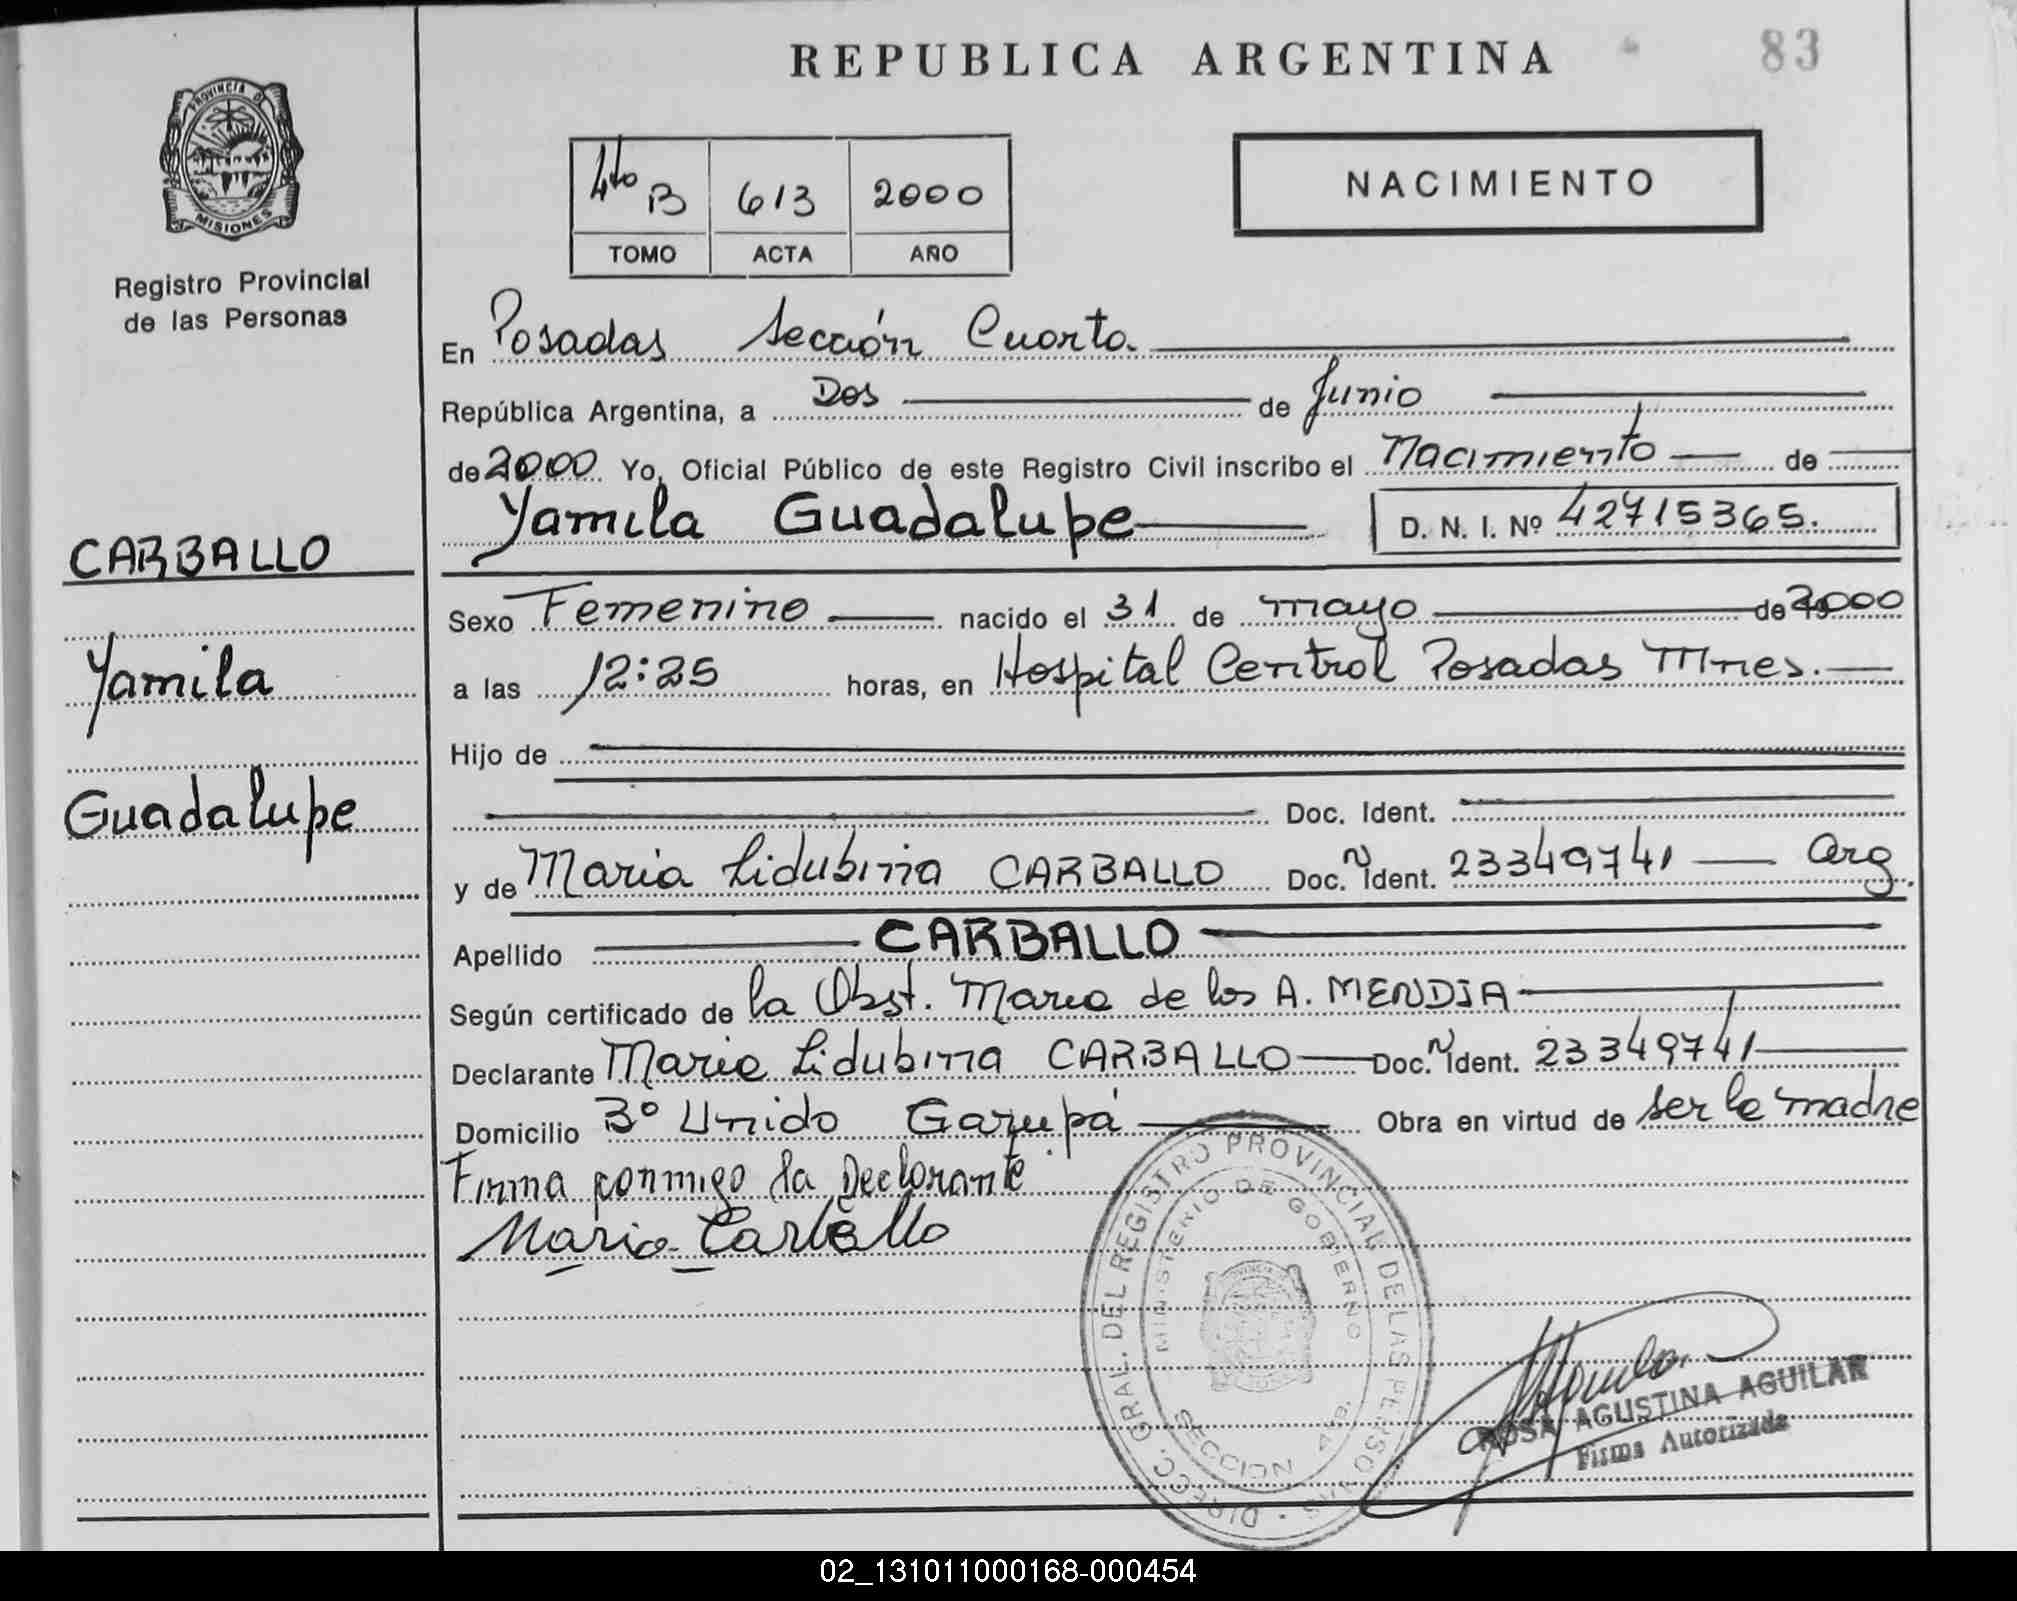 REPUBLICA ARGENTINA
83
PROVINCIA DE
MISIONES
Registro Provincial
de las Personas
4to B 613 2000
TOMO ACTA AÑO
NACIMIENTO
En Posadas Sección Cuarta
República Argentina, a Dos de Junio
de 2000 Yo, Oficial Público de este Registro Civil inscribo el Nacimiento de
Yamila Guadalupe D. N. I. Nº 42715365.
CARBALLO
Yamila
Guadalupe
Sexo Femenino nacido el 31 de mayo de 2000
a las 12:25 horas, en Hospital Central Posadas Mnes.
Hijo de
Doc. Ident.
y de Maria Lidubina CARBALLO Doc. N Ident. 23349741 Arg.
Apellido CARBALLO
Según certificado de la Obst. Maria de los A. MENDIA
Declarante Maria Lidubina CARBALLO Doc. N Ident. 23349741
Domicilio Bº Unido Garupá Obra en virtud de ser la madre
Firma conmigo la Declarante
Maria Carballo
DIRECC. GRAL. DEL REGISTRO PROVINCIAL DE LAS PERSONAS
MINISTERIO DE GOBIERNO
SECCION 4ta.
ROSA AGUSTINA AGUILAR
Firma Autorizada
02_131011000168-000454